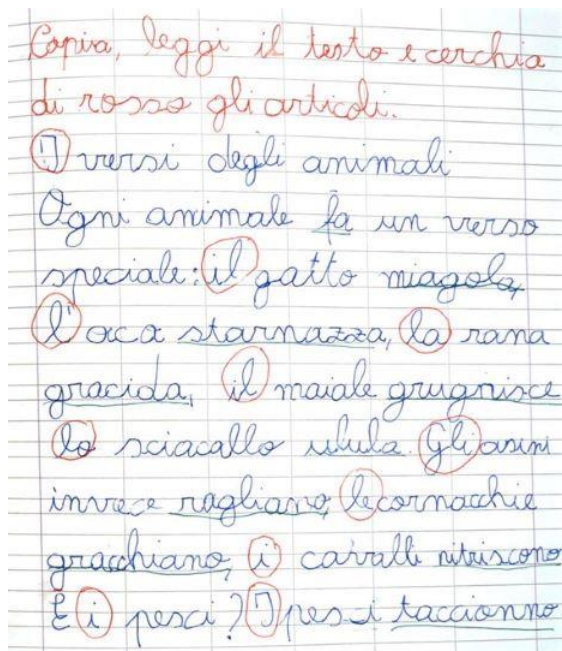 Copia, leggi il testo e cerchia
di rosso gli articoli.
I versi degli animali
Ogni animale fa un verso
speciale: il gatto miagola,
l'oca starnazza, la rana
gracida, il maiale grugnisce
lo sciacallo ulula. Gli asini
invece ragliano, le cornacchie
gracchiano, i cavalli nitriscono
E i pesci? I pesci tacciono